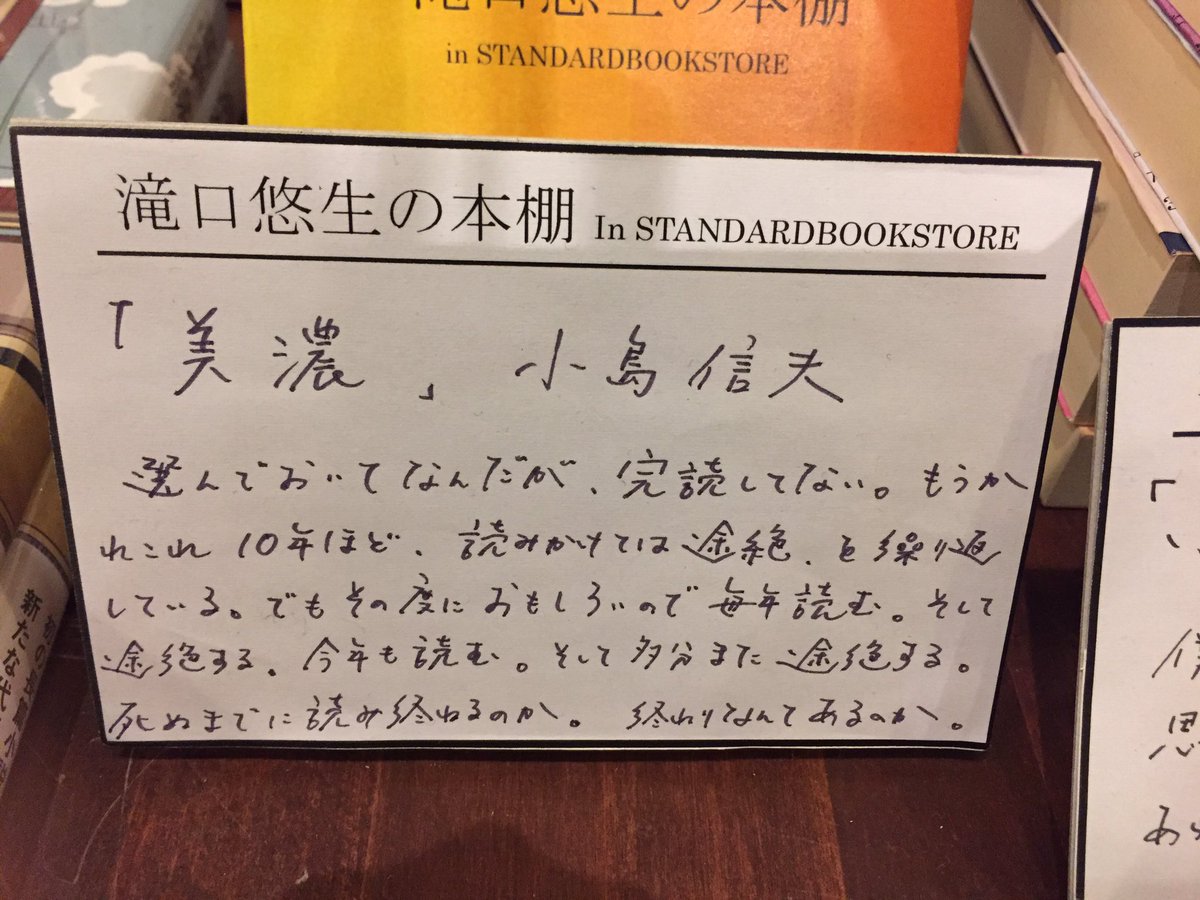 滝口悠生の本棚
in STANDARDBOOKSTORE
滝口悠生の本棚 In STANDARDBOOKSTORE
「美濃」 小島信夫
選んでおいてなんだが、完読してない。もうか
れこれ10年ほど、読みかけては途絶、を繰り返
している。でもその度におもしろいので毎年読む。そして
途絶する。今年も読む。そして多分また途絶する。
死ぬまでに読み終わるのか。終わりなんてあるのか。
新たな代
思